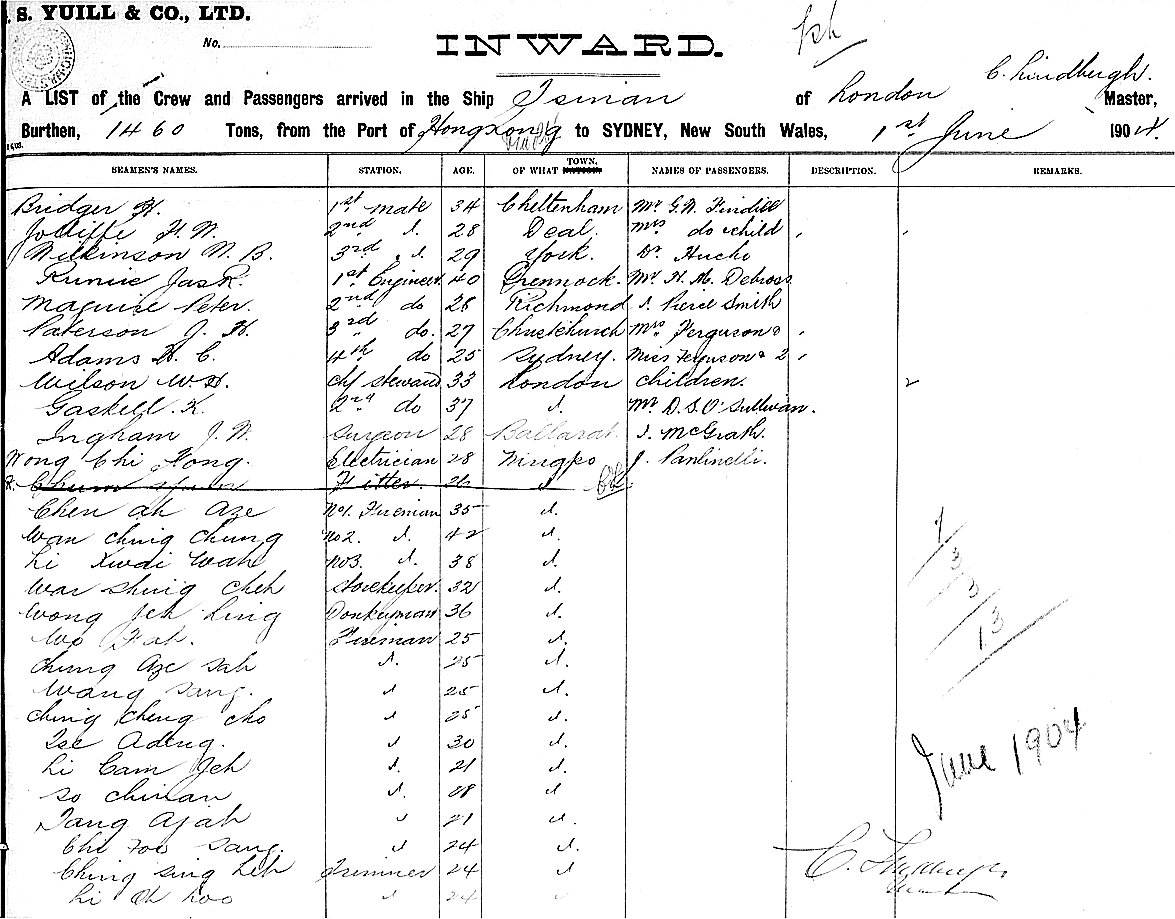 S. YUILL & CO., LTD.
No.
INWARD.
C. Lindbergh.
A LIST of the Crew and Passengers arrived in the Ship Tsinan of London Master,
Burthen, 1460 Tons, from the Port of Hongkong to SYDNEY, New South Wales, 1st June 1904.
SEAMEN'S NAMES. STATION. AGE. OF WHAT TOWN. NAMES OF PASSENGERS. DESCRIPTION. REMARKS.
Bridger H. 1st mate 34 Cheltenham Mr G.W. Tindill
Jolliffe F. W. 2nd d. 28 Deal. Mrs do & child
Wilkinson W. B. 3rd d. 29 York. Dr Hucho
Runcie Jas R. 1st Engineer 40 Greenock. Mr H. M. Debross
Maguire Peter. 2nd do 28 Richmond d. Pierce Smith
Paterson J. H. 3rd do. 27 Christchurch Mrs Ferguson &
Adams H. C. 4th do 25 Sydney. Miss Ferguson & 2
Wilson W. H. chf steward 33 London children.
Gaskell. K. 2nd do 37 d. Mr D. S. O'Sullivan.
Ingham J. W. Surgeon 28 Ballarat d. McGrath.
Wong Chi Fong. Electrician 28 Ningpo J. Pantinelli.
Fitter. 26 d.
Chen ah Aze No1. Fireman 35 d.
Wan ching chung no2. d. 42 d.
Li Kwai Wah no3. d. 38 d.
War shing cheh Storekeeper. 32 d.
Wong Jeh Ling Donkeyman 36 d.
Wo Fah. Fireman 25 d.
Chung Aze Sah d. 25 d.
Wang Sang. d 25 d.
Ching cheng cho d 25 d.
Tse Adeng. d 30 d.
Li Cam Jeh d. 21 d.
So chinan d. 28 d.
Tang Ajah d 21 d.
Chi Foo Sang. d 24 d.
Ching sing Leh Trimmer 24 d.
Li Ah Loo d 24 d
1
3
3
13
June 1904